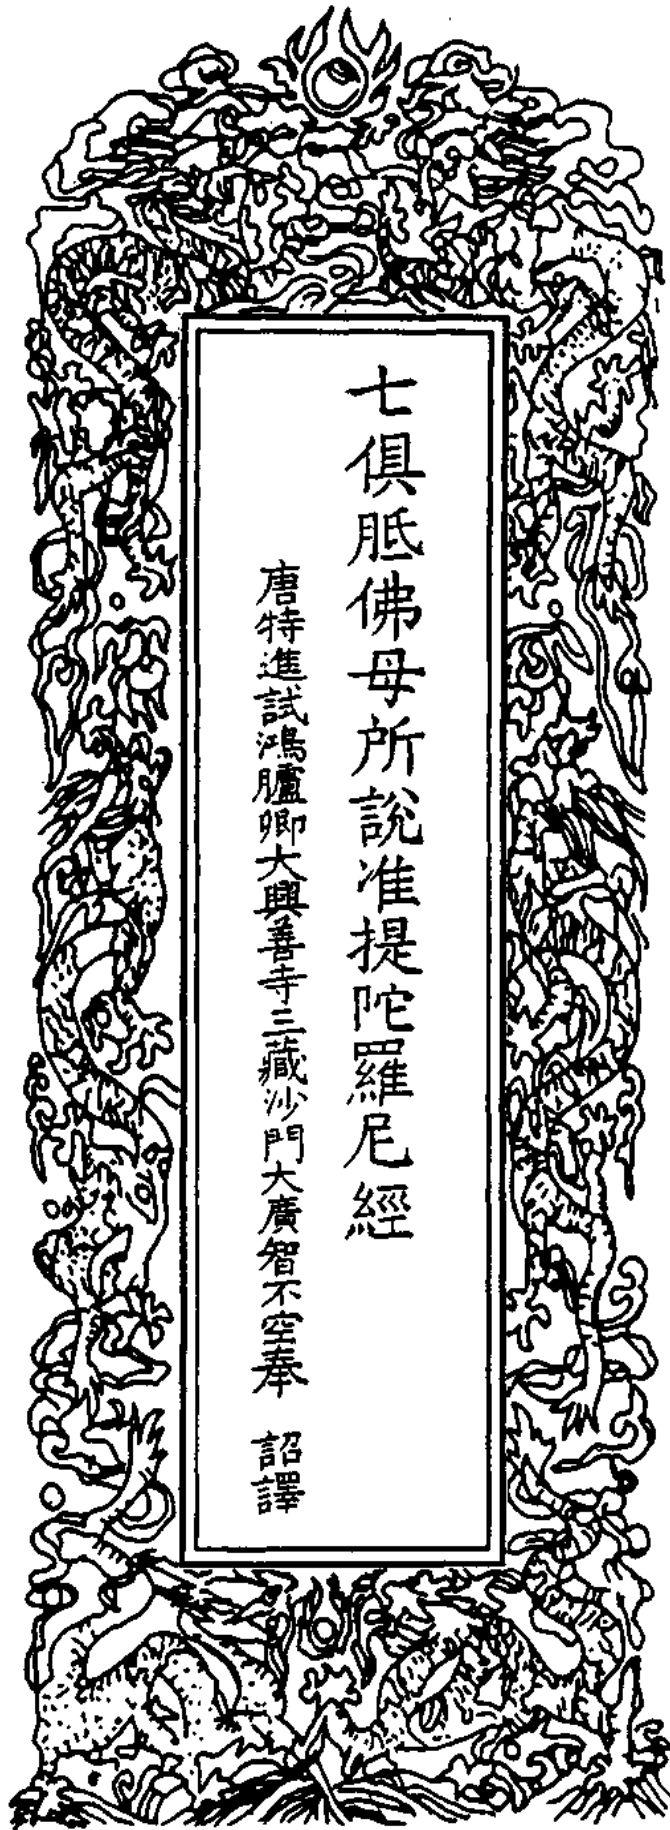 七俱胝佛母所說准提陀羅尼經
唐特進試鴻臚卿大興善寺三藏沙門大廣智不空奉　詔譯